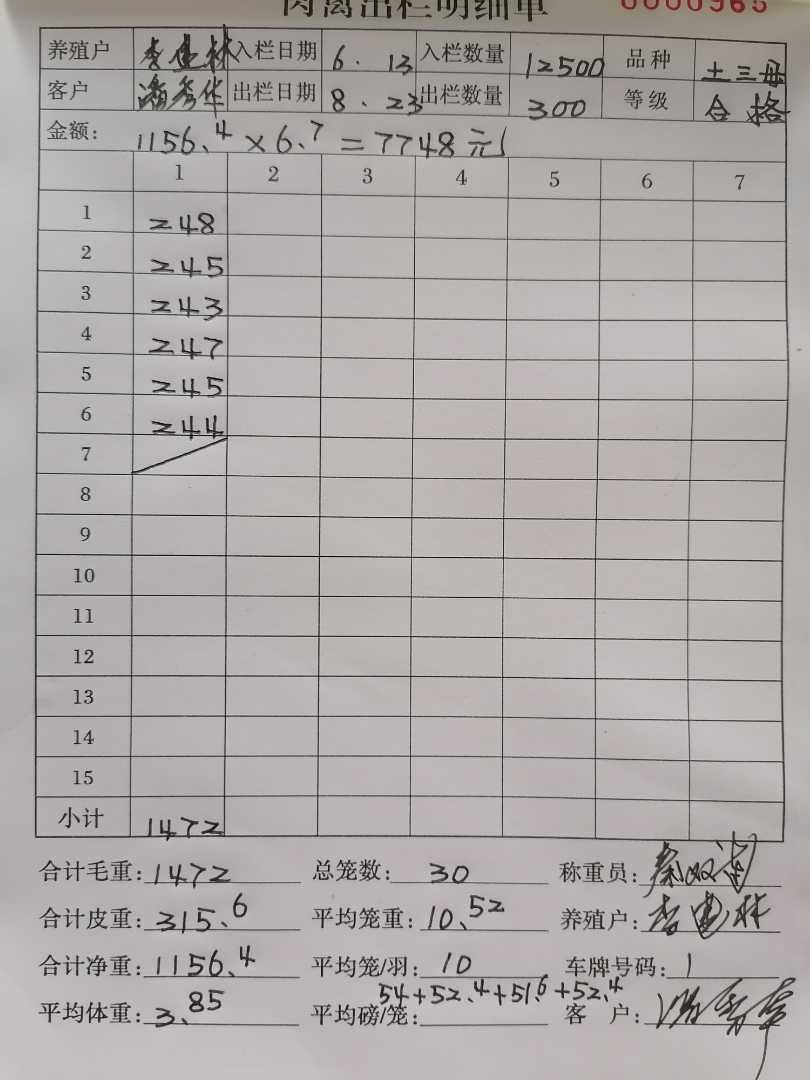 肉禽出栏明细单 0000965
养殖户 李建林 入栏日期 6.13 入栏数量 12500 品种 土三母
客户 潘秀华 出栏日期 8.23 出栏数量 300 等级 合格
金额: 1156.4×6.7=7748元
1 2 3 4 5 6 7
1 248
2 245
3 243
4 247
5 245
6 244
7
8
9
10
11
12
13
14
15
小计 1472
合计毛重: 1472 总笼数: 30 称重员:
合计皮重: 315.6 平均笼重: 10.52 养殖户: 李建林
合计净重: 1156.4 平均笼/羽: 10 车牌号码: 1
平均体重: 3.85 平均磅/笼: 54+52.4+51.6+52.4 客 户: